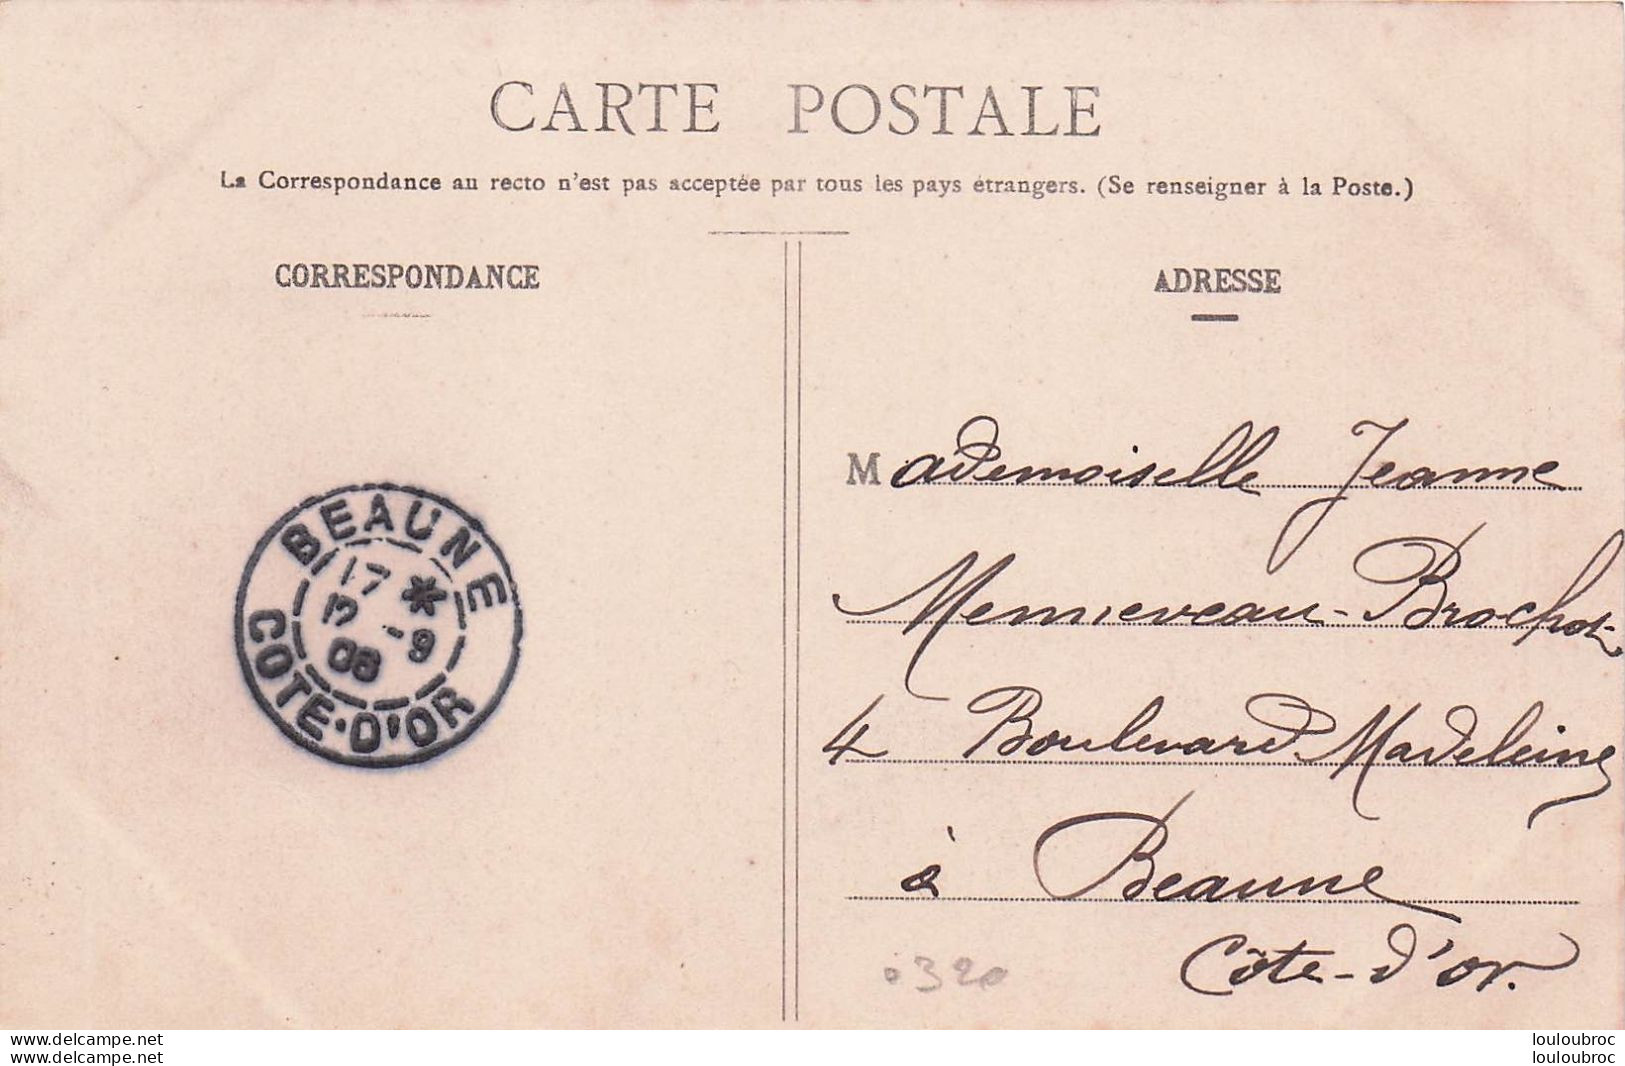 CARTE POSTALE
La Correspondance au recto n'est pas acceptée par tous les pays étrangers. (Se renseigner à la Poste.)
CORRESPONDANCE
ADRESSE
BEAUNE
17 *
3 -9
08
COTE-D'OR
Mademoiselle Jeanne
Mennieveau-Brochot
4 Boulevard Madeleine
à Beaune
Côte-d'or.
0320
delcampe.net
louloubroc
delcampe.net
louloubroc